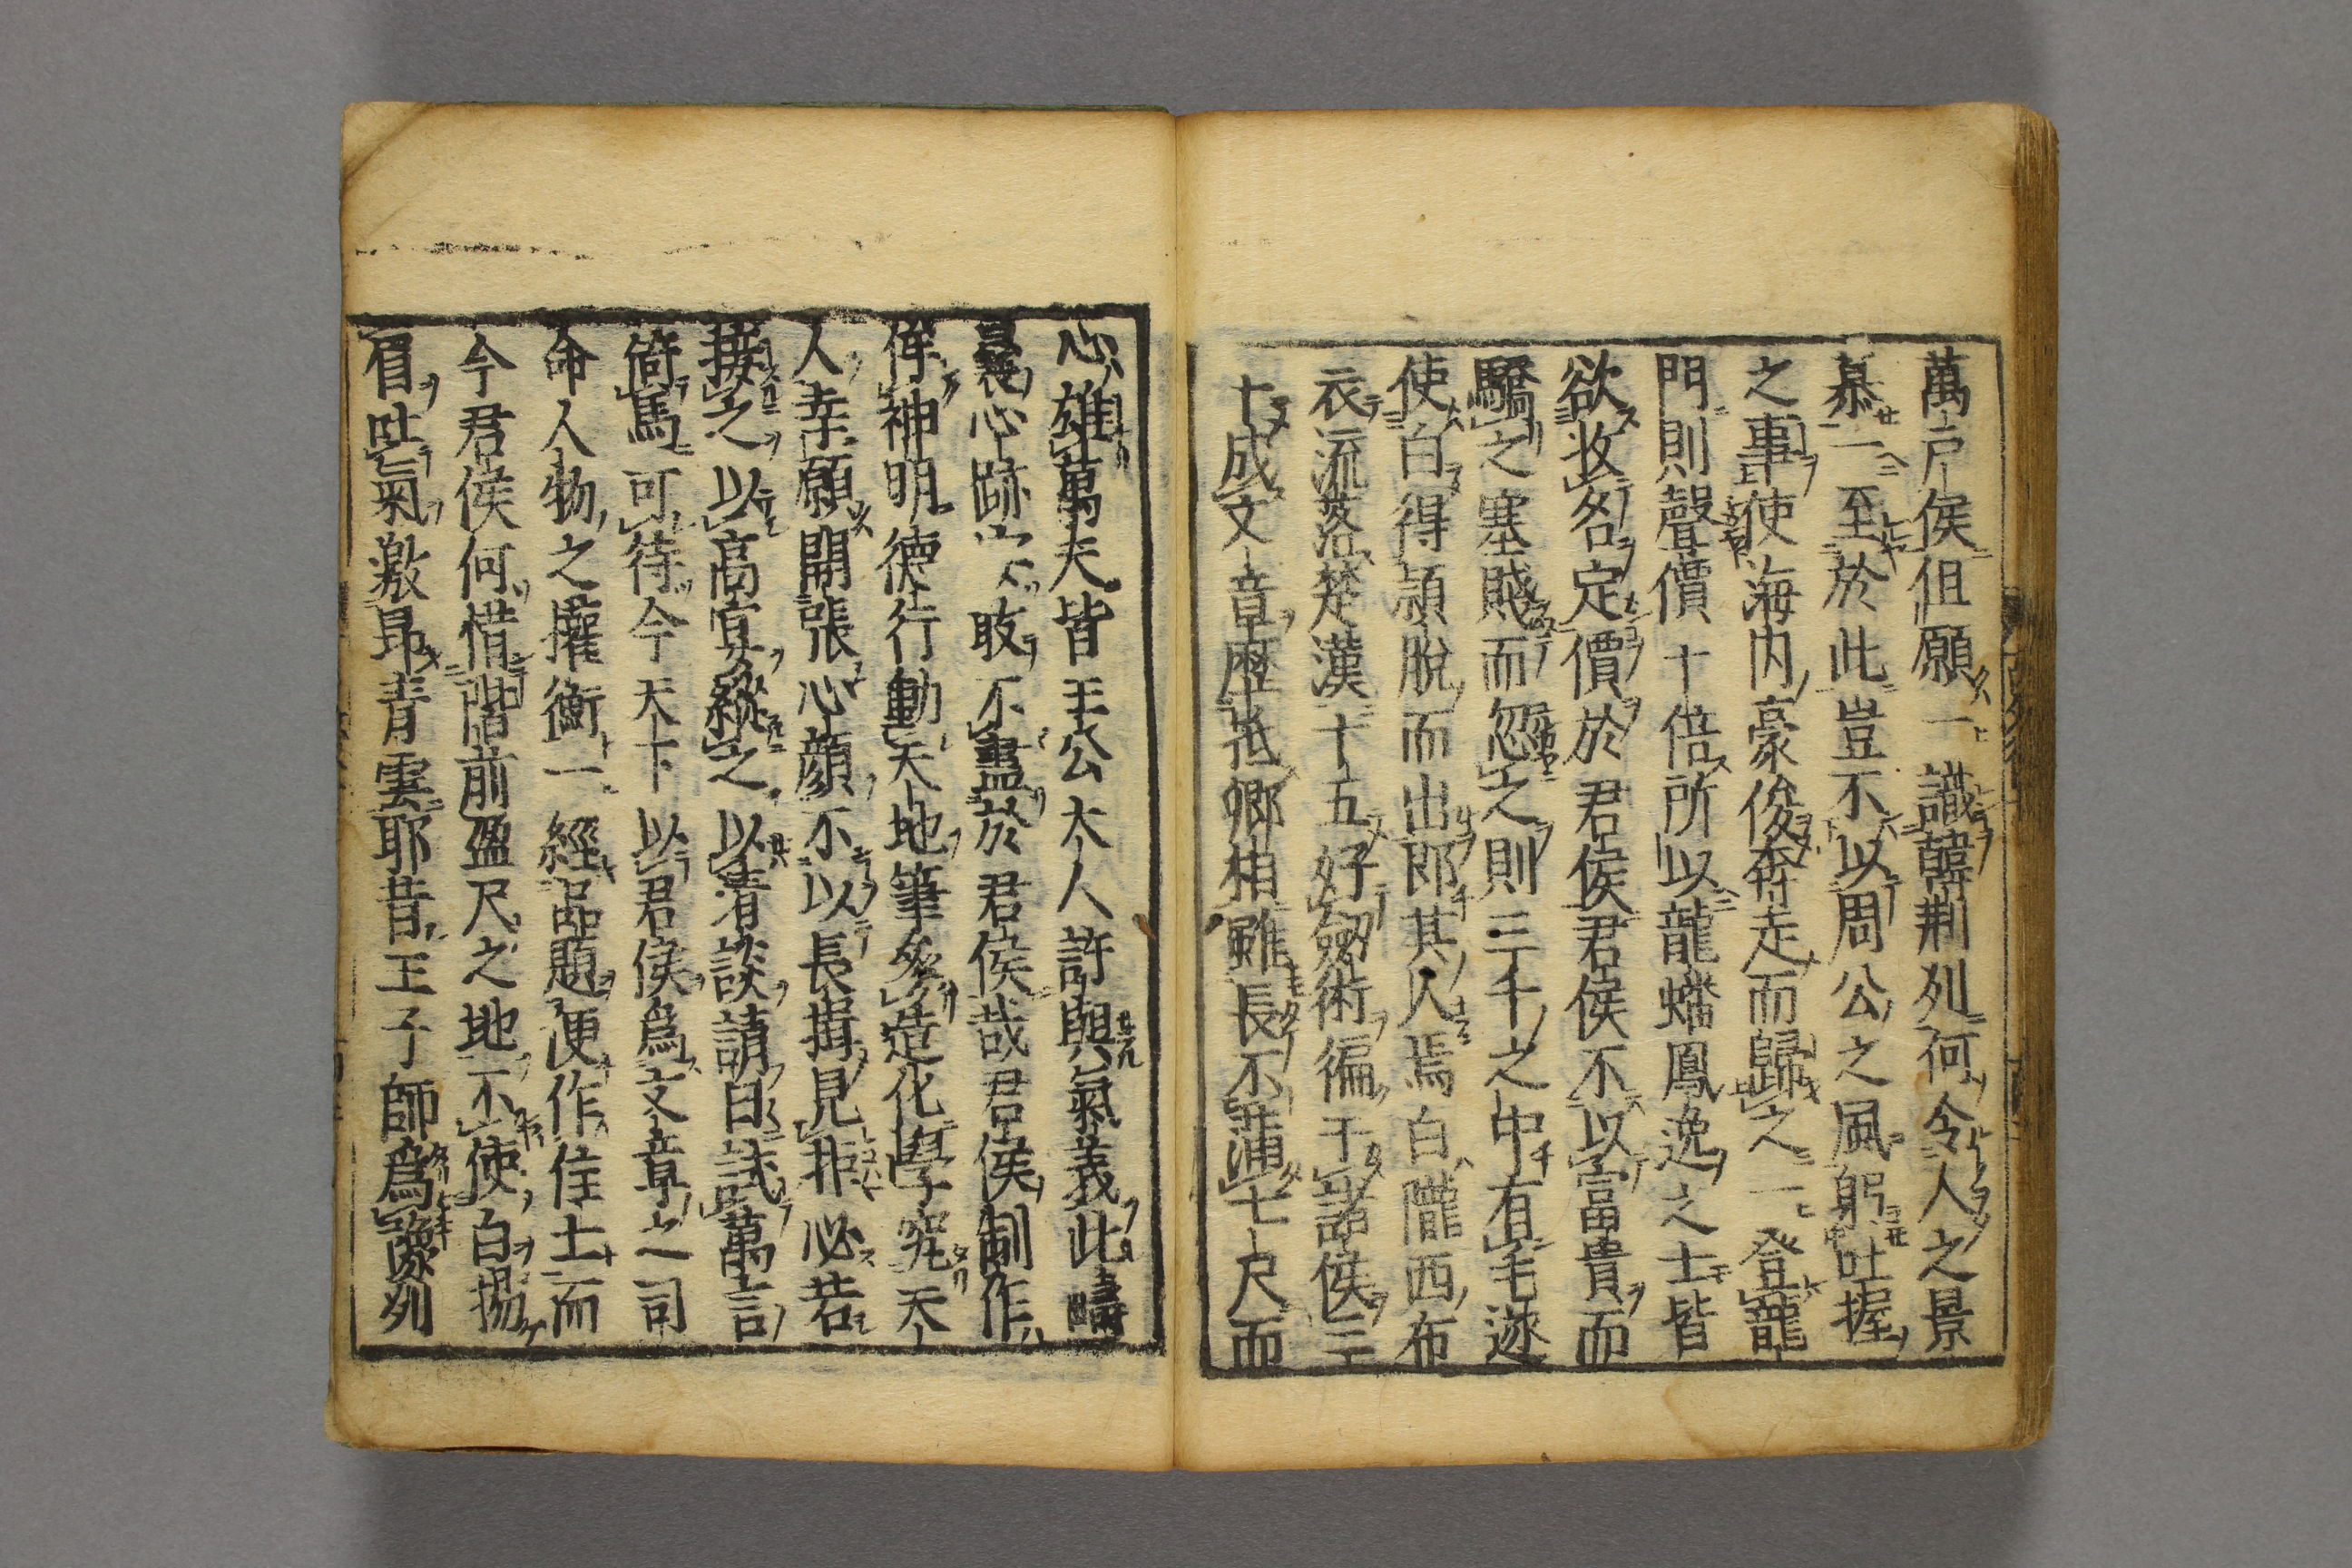 萬戶侯但願一識韓荆列何令人之景
慕一至於此豈不以周公之風躬吐握
之事使海内豪俊奔走而歸之一登龍
門則聲價十倍所以龍蟠鳳逸之士皆
欲收名定價於君侯君侯不以富貴而
驕之塞賤而忽之則三千之中有毛遂
使白得頴脫而出即其人焉白隴西布
衣流落楚漢十五好劔術徧干諸侯三
十成文章歷抵卿相雖長不滿七尺而
心雄萬夫皆王公大人許與氣義此疇
曩心跡安敢不盡於君侯哉君侯制作
侔神明德行動天地筆參造化學究天
人幸願開張心顔不以長揖見拒必若
接之以高宴縱之以清談請日試萬言
倚馬可待今天下以君侯爲文章之司
命人物之權衡一經品題便作佳士而
今君侯何惜階前盈尺之地不使白揚
眉吐氣激昂青雲耶昔王子師爲豫列